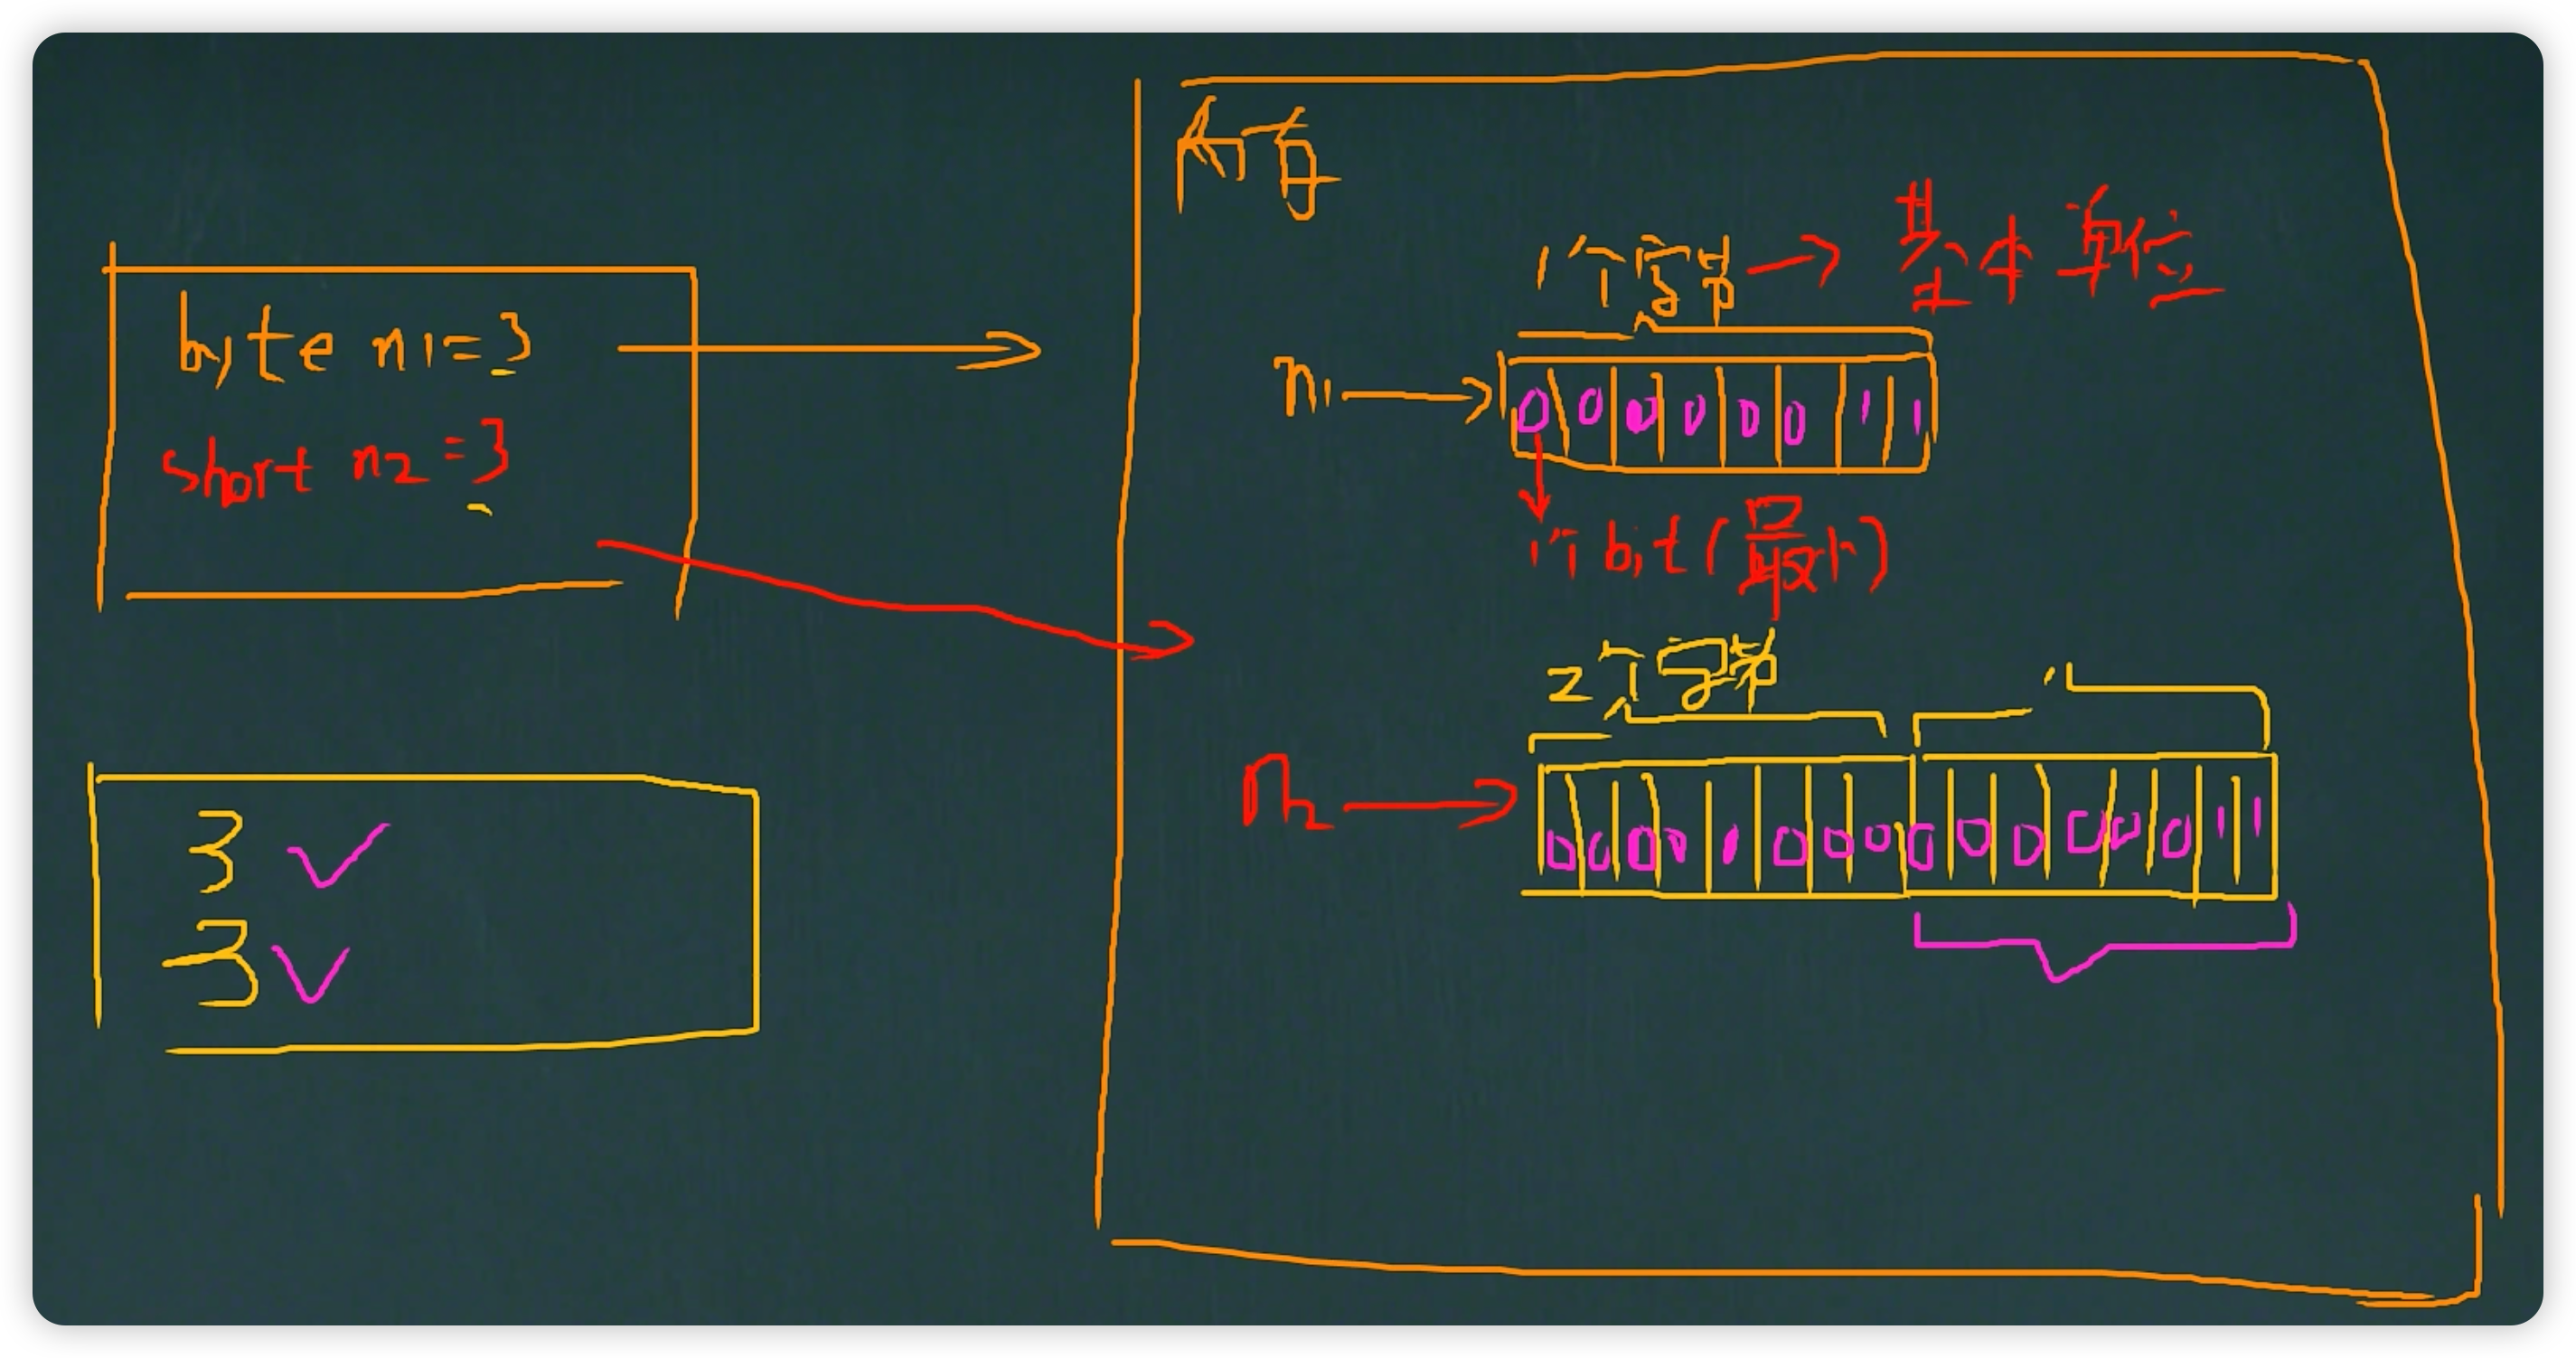 byte n1=3
short n2=3
3
3
内存
1个字节 → 基本单位
n1 → 0 0 0 0 0 0 1 1
1个bit(最小)
2个字节
n2 → 0 0 0 0 0 0 0 0 0 0 0 0 0 0 1 1